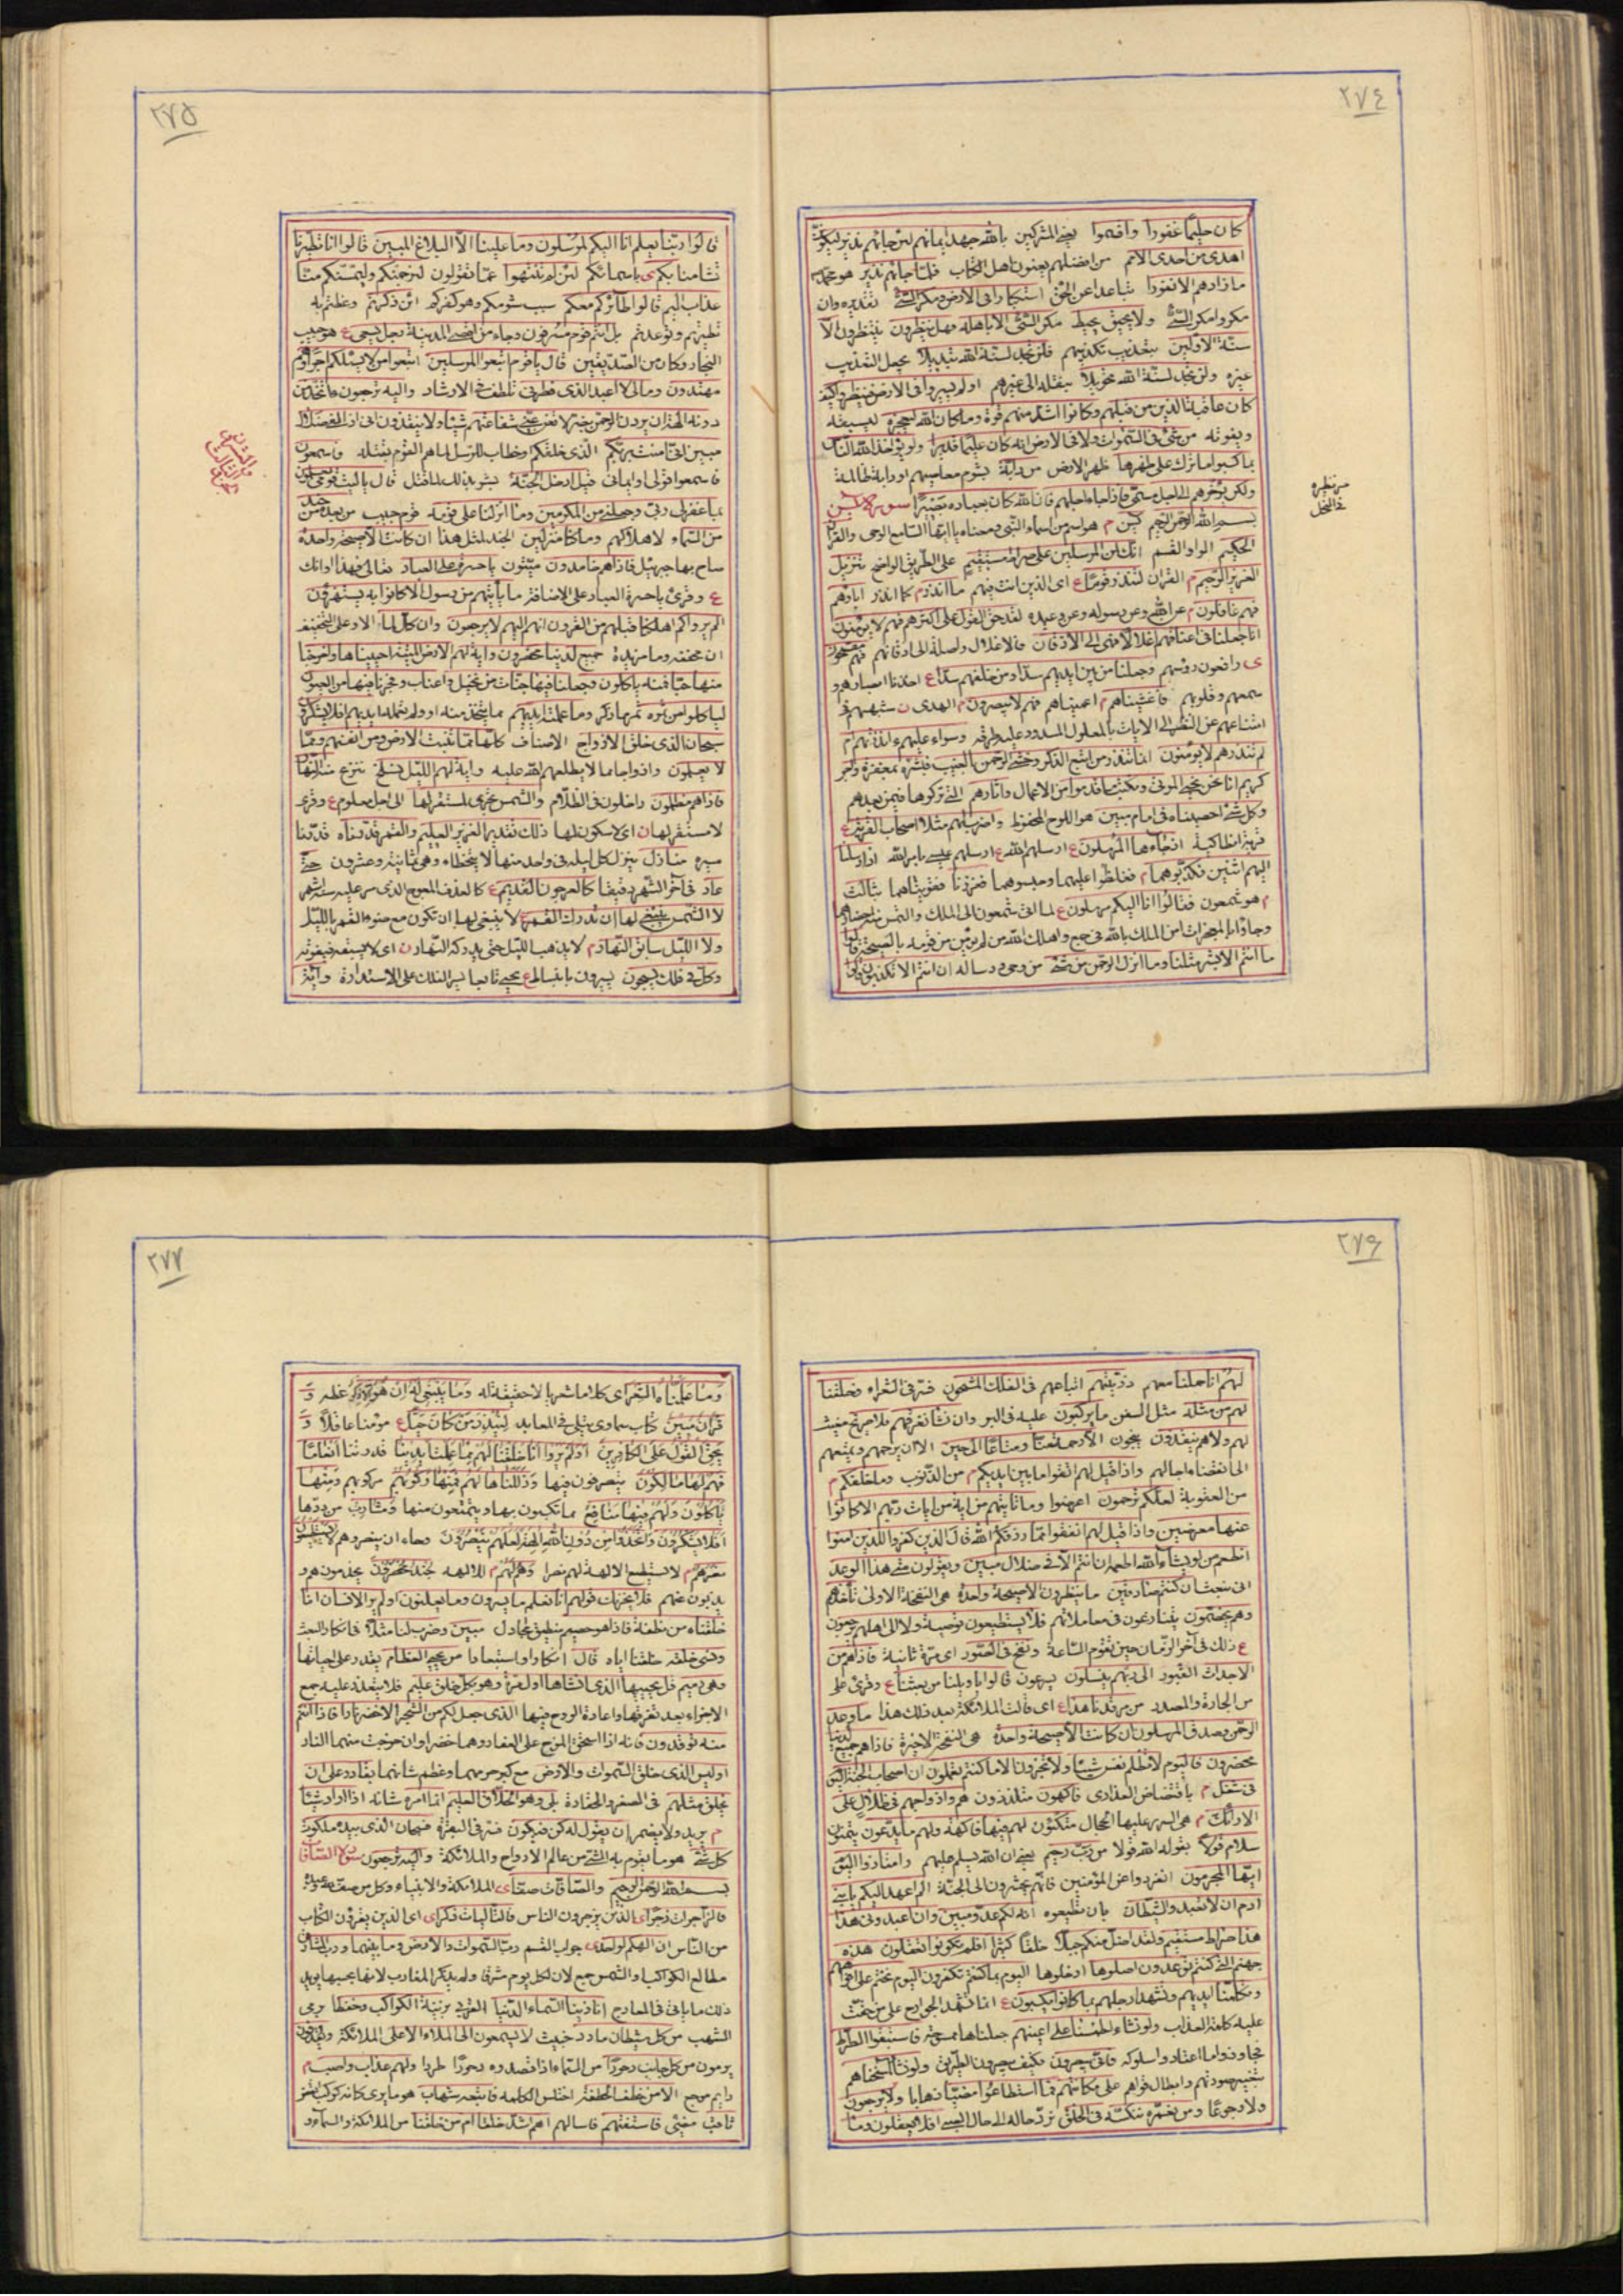 ٢٧٤
كان حليما غفورا واقسموا يعني المشركين بالله جهد ايمانهم لئن جائهم نذير ليكونن
اهدى من احدى الامم من افضلهم يعنون اهل الكتاب فلما جائهم نذير هو محمد
ما زادهم الا نفورا تباعدا عن الحق استكبارا في الارض ومكر السيّئ تقديره وان
مكروا مكر السيّئ ولا يحيق يحيط مكر السيّئ الا باهله فهل ينظرون ينتظرون الا
سنة الاولين بتعذيب مكذبيهم فلن تجد لسنة الله تبديلا يجعل التعذيب
غيره ولن تجد لسنة الله تحويلا بنقله الى غيرهم اولم يسيروا في الارض فينظروا كيف
كان عاقبة الذين من قبلهم وكانوا اشد منهم قوة وما كان الله ليعجزه ليسبقه
ويفوته من شئ في السموات ولا في الارض انه كان عليما قديرا ولو يؤاخذ الله الناس
بما كسبوا ما ترك على ظهرها ظهر الارض من دابة بشوم معاصيهم او دابة ظالمة
ولكن يؤخرهم الى اجل مسمى فاذا جاء اجلهم فان الله كان بعباده بصيرا سورة يس
بسم الله الرحمن الرحيم يس م هو اسم من اسماء النبي ومعناه يا ايها السامع الوحي والقران
الحكيم الواو القسم انك لمن المرسلين على صراط مستقيم على الطريق الواضح تنزيل
العزيز الرحيم م القران لتنذر قوما ع اى الذين انت فيهم ما انذر م كما انذر اباؤهم
فهم غافلون م عن الله وعن رسوله وعن وعيده لقد حق القول على اكثرهم فهم لا يؤمنون
انا جعلنا في اعناقهم اغلالا فهى الى الاذقان فالاغلال واصلة الى اذقانهم فهم مقمحون
ى رافعون رؤسهم وجعلنا من بين ايديهم سدا ومن خلفهم سدا ع اخذنا ابصارهم و
سمعهم وقلوبهم فاغشيناهم م اعميناهم فهم لا يبصرون م الهدى ن شبههم في
امتناعهم عن النظر الى الايات بالمغلول المسدود عليه طرقه وسواء عليهم ءانذرتهم ام
لم تنذرهم لا يؤمنون انما تنذر من اتبع الذكر وخشى الرحمن بالغيب فبشره بمغفرة واجر
كريم انا نحن نحيى الموتى ونكتب ما قدموا من الاعمال واثارهم التي تركوها فيمن بعدهم
وكل شئ احصيناه في امام مبين هو اللوح المحفوظ واضرب لهم مثلا اصحاب القرية ع
قرية انطاكية اذ جاءها المرسلون ع ارسلهم الله ع ارسلهم عيسى بامر الله اذ ارسلنا
اليهم اثنين فكذبوهما م فغلظوا عليهما وحبسوهما فعززنا فقويناهما بثالث
م هو شمعون فقالوا انا اليكم مرسلون ع
ما انتم الا بشر مثلنا وما انزل الرحمن من شئ من وحى ورسالة ان انتم الا تكذبون قالوا
٢٧٥
قالوا ربنا يعلم انا اليكم لمرسلون وما علينا الا البلاغ المبين قالوا انا تطيرنا
تشأمنا بكم ى باسمائكم لئن لم تنتهوا عما تقولون لنرجمنكم وليمسنكم منا
عذاب اليم قالوا طائركم معكم سبب شومكم وهو كفركم ائن ذكرتم وعظتم به
تطيرتم وتوعدتم بل انتم قوم مسرفون وجاء من اقصى المدينة رجل يسعى ع هو حبيب
النجار وكان من الصديقين قال يا قوم اتبعوا المرسلين اتبعوا من لا يسئلكم اجرا وهم
مهتدون وما لى لا اعبد الذى فطرنى تلطف في الارشاد واليه ترجعون ءاتخذ من
دونه الهة ان يردن الرحمن بضر لا تغن عنى شفاعتهم شيئا ولا ينقذون انى اذا لفى ضلال
مبين انى امنت بربكم الذى خلقكم او خطاب للرسل لما هم القوم بقتله فاسمعون
فاسمعوا قولى او ايمانى قيل ادخل الجنة بشر بذلك لما قتل قال يا ليت قومى يعلمون
بما غفر لى ربى وجعلنى من المكرمين وما انزلنا على قومه قوم حبيب من بعده من جند
من السماء لاهلاكهم وما كنا منزلين الجند لمثل هذا ان كانت الا صيحة واحدة
صاح بها جبرئيل فاذا هم خامدون ميتون يا حسرة على العباد تعالى فهذا اوانك
ع وقرئ يا حسرة العباد على الاضافة ما يأتيهم من رسول الا كانوا به يستهزؤن
الم يروا كم اهلكنا قبلهم من القرون انهم اليهم لا يرجعون وان كل لما الا وعلى التخفيف
ان مخففة وما مزيدة جميع لدينا محضرون واية لهم الارض الميتة احييناها واخرجنا
منها حبا فمنه ياكلون وجعلنا فيها جنات من نخيل واعناب وفجرنا فيها من العيون
لياكلوا من ثمره ثمر ما ذكر وما عملته ايديهم مما يتخذ منه او ولم تعمله ايديهم افلا يشكرون
سبحان الذى خلق الازواج الاصناف كلها مما تنبت الارض ومن انفسهم ومما
لا يعلمون وازواجا مما لا يطلعهم الله عليه واية لهم الليل نسلخ ننزع منه النهار
فاذا هم مظلمون داخلون في الظلام والشمس تجرى لمستقر لها الى اجل معلوم ع وقرئ
لا مستقر لها ن اى لا سكون لها ذلك تقدير العزيز العليم والقمر قدرناه قدرنا
سيره منازل ينزل كل ليلة في واحد منها لا يتخطاه وهى ثمانية وعشرون حتى
عاد في آخر الشهر دقيقا كالعرجون القديم ع كالعذق المعوج الذى مر عليه ستة اشهر
لا الشمس ينبغى لها ان تدرك القمر ع لا ينبغى لها ان تكون مع ضوء القمر بالليل
ولا الليل سابق النهار م لا يذهب الليل حتى يدركه النهار ن اى لا يسبقه فيفوته
وكل في فلك يسبحون يسيرون بانبساط ع يجئ تابعا بسير الفلك على الاستدارة واية
٢٧٦
لهم انا حملنا معهم ذريتهم اتباعهم في الفلك المشحون فسر في الشعراء وخلقنا
لهم من مثله مثل السفن ما يركبون عليه في البر وان نشأ نغرقهم فلا صريخ مغيث
لهم ولا هم ينقذون ينجون الا رحمة منا ومتاعا الى حين الا ان يرحمهم ويمتعهم
الى انقضاء اجالهم واذا قيل لهم اتقوا ما بين ايديكم م من الذنوب وما خلفكم م
من العقوبة لعلكم ترحمون اعرضوا وما تاتيهم من اية من ايات ربهم الا كانوا
عنها معرضين واذا قيل لهم انفقوا مما رزقكم الله قال الذين كفروا للذين امنوا
انطعم من لو يشاء الله اطعمه ان انتم الا في ضلال مبين ويقولون متى هذا الوعد
ان كنتم صادقين ما ينظرون الا صيحة واحدة هى النفخة الاولى تأخذهم
وهم يخصمون يتنازعون في معاملاتهم فلا يستطيعون توصية ولا الى اهلهم يرجعون
ع ذلك في آخر الزمان حين تقوم الساعة ونفخ في الصور اى مرة ثانية فاذا هم من
الاجداث القبور الى ربهم ينسلون يسرعون قالوا يا ويلنا من بعثنا ع وقرئ على
من الجارة والمصدر من مرقدنا هذا ع اى قالت الملائكة بعد ذلك هذا ما وعد
الرحمن وصدق المرسلون ان كانت الا صيحة واحدة هى النفخة الاخيرة فاذا هم جميع لدينا
محضرون فاليوم لا تظلم نفس شيئا ولا تجزون الا ما كنتم تعملون ان اصحاب الجنة اليوم
في شغل م بافتضاض العذارى فاكهون متلذذون هم وازواجهم في ظلال على
الارائك م هى السرر عليها الحجال متكئون لهم فيها فاكهة ولهم ما يدعون يتمنون
سلام قولا بقوله الله قولا من رب رحيم يعنى ان الله يسلم عليهم وامتازوا اليوم
ايها المجرمون انفردوا عن المؤمنين فانهم يحشرون الى الجنة الم اعهد اليكم يا بنى
ادم ان لا تعبدوا الشيطان بان تطيعوه انه لكم عدو مبين وان اعبدونى هذا
هذا صراط مستقيم ولقد اضل منكم جبلا خلقا كثيرا افلم تكونوا تعقلون هذه
جهنم التي كنتم توعدون اصلوها ادخلوها اليوم بما كنتم تكفرون اليوم نختم على افواههم
وتكلمنا ايديهم وتشهد ارجلهم بما كانوا يكسبون ع انما تشهد الجوارح على من حقت
عليه كلمة العذاب ولو نشاء لطمسنا على اعينهم جعلناها ممسوحة فاستبقوا الصراط
تجاوزوا ما اعتادوا سلوكه فانى يبصرون فكيف يبصرون الطريق ولو نشأ لمسخناهم
بتغيير صورتهم وابطال قواهم على مكانتهم فما استطاعوا مضيا ذهابا ولا يرجعون
ولا رجوعا ومن نعمره ننكسه في الخلق نرد حاله الى حال الصبى افلا يعقلون وما
٢٧٧
وما علمناه الشعر اى كلاما شعريا لا حقيقة له وما ينبغى له ان هو الا ذكر عظة و
قران مبين كتاب سماوى يتلى في المعابد لينذر من كان حيا ع مؤمنا عاقلا و
يحق القول على الكافرين اولم يروا انا خلقنا لهم مما عملت ايدينا قدرتنا انعاما
فهم لها مالكون يتصرفون فيها وذللناها لهم فمنها ركوبهم مركوبهم ومنها
ياكلون ولهم فيها منافع مما يكسبون بها ويتمتعون منها ومشارب من درها
افلا يشكرون واتخذوا من دون الله الهة لعلهم ينصرون رجاء ان ينصروهم لا يستطيعون
نصرهم م لا تستطيع الالهة لهم نصرا وهم لهم م للالهة جند محضرون يخدمونهم و
يذبون عنهم فلا يحزنك قولهم انا نعلم ما يسرون وما يعلنون اولم ير الانسان انا
خلقناه من نطفة فاذا هو خصيم منطيق مجادل مبين وضرب لنا مثلا في انكار البعث
ونسى خلقه خلقنا اياه قال انكارا واستبعادا من يحيى العظام يقدر على احيائها
وهى رميم قل يحييها الذى انشاها اول مرة وهو بكل خلق عليم فلا يتعذر عليه جمع
الاجزاء بعد تفرقها واعادة الروح فيها الذى جعل لكم من الشجر الاخضر نارا فاذا انتم
منه توقدون
اوليس الذى خلق السموات والارض مع كبر جرمهما وعظم شانهما بقادر على ان
يخلق مثلهم في الصغر والحقارة بلى وهو الخلاق العليم انما امره شانه اذا اراد شيئا
م يريد ولا يضمر ان يقول له كن فيكون فسر في البقرة فسبحان الذى بيده ملكوت
كل شئ هو ما يقوم به الشئ من عالم الارواح والملائكة واليه ترجعون سورة الصافات
بسم الله الرحمن الرحيم والصافات صفا ى الملائكة والانبياء وكل من صف لله وعبده
فالزاجرات زجرا ى الذين يزجرون الناس فالتاليات ذكرا ى الذين يقرؤن الكتاب
من الناس ان الهكم لواحد ى جواب القسم رب السموات والارض وما بينهما ورب المشارق
مطالع الكواكب او الشمس جمع لان لكل يوم مشرقا ولم يذكر المغارب
ذلك ما ياتى في المعارج انا زينا السماء الدنيا القربى بزينة الكواكب وحفظا برمى
الشهب من كل شيطان مارد خبيث لا يسمعون الى الملاء الاعلى الملائكة ويقذفون
يرمون من كل جانب دحورا من السماء اذا قصدوه دحورا طردا ولهم عذاب واصب م
دايم موجع الا من خطف الخطفة اختلس الكلمة فاتبعه شهاب هو ما يرى كانه كوكب انقض
ثاقب مضئ فاستفتهم فاسالهم اهم اشد خلقا ام من خلقنا من الملائكة والسماء و